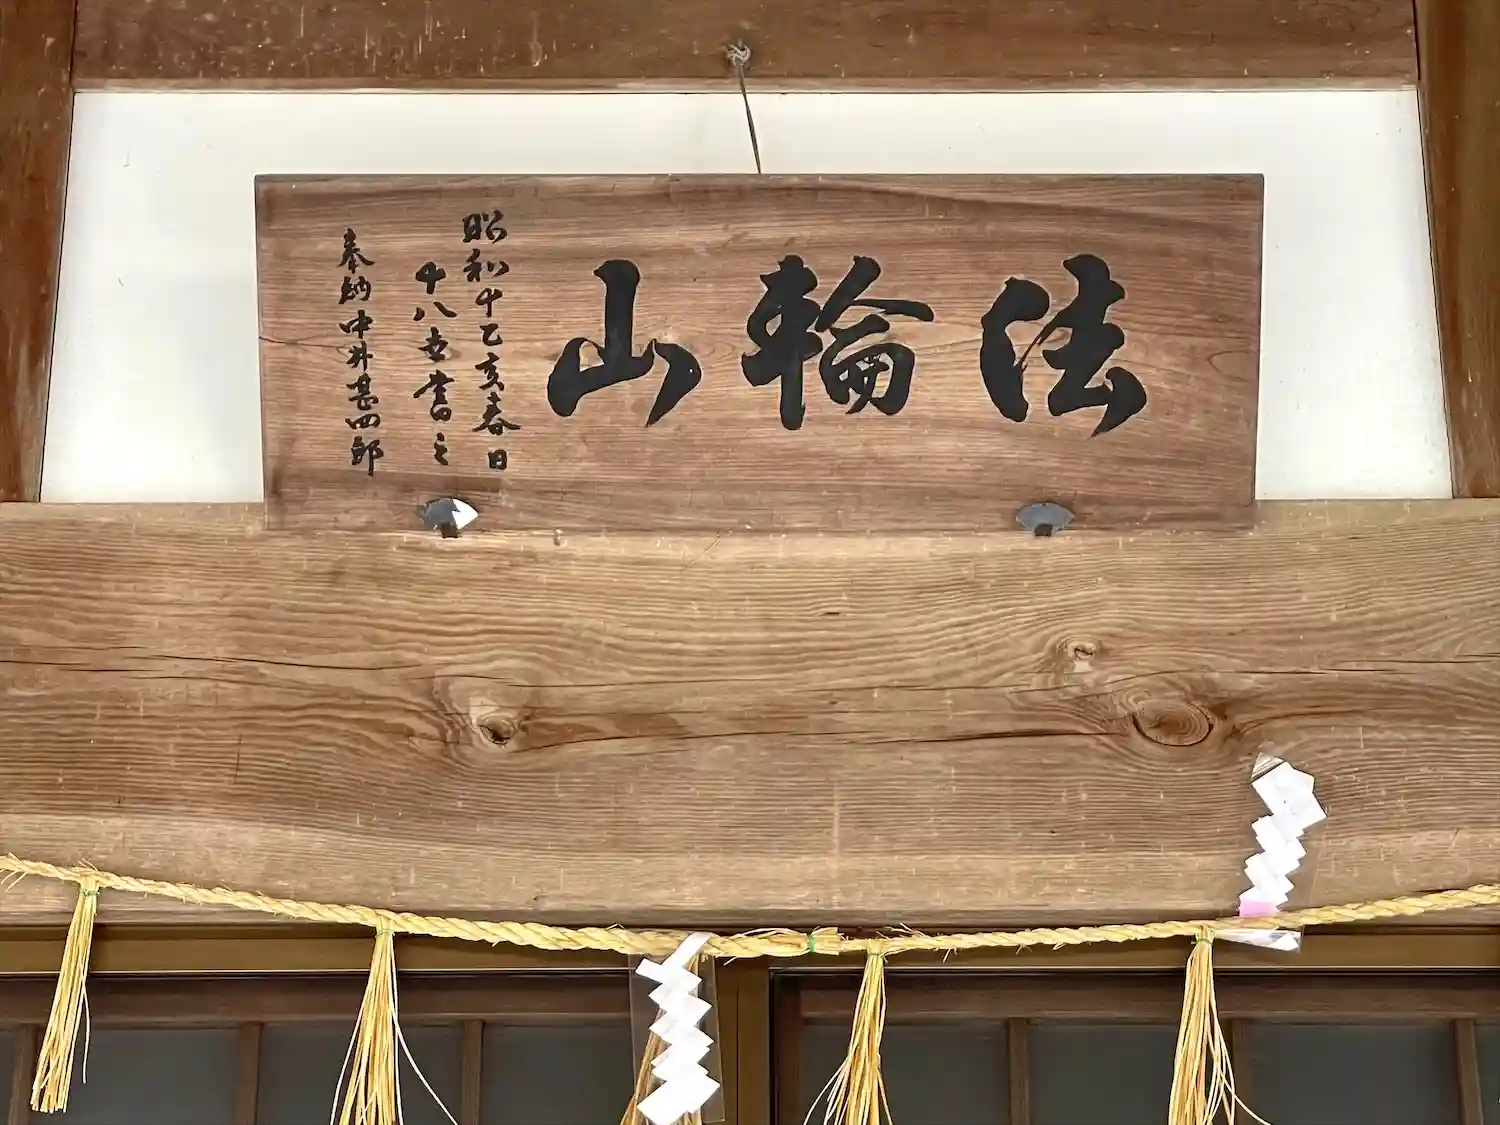 法輪山
昭和十乙亥春日
十八世書之
奉納中井甚四郎